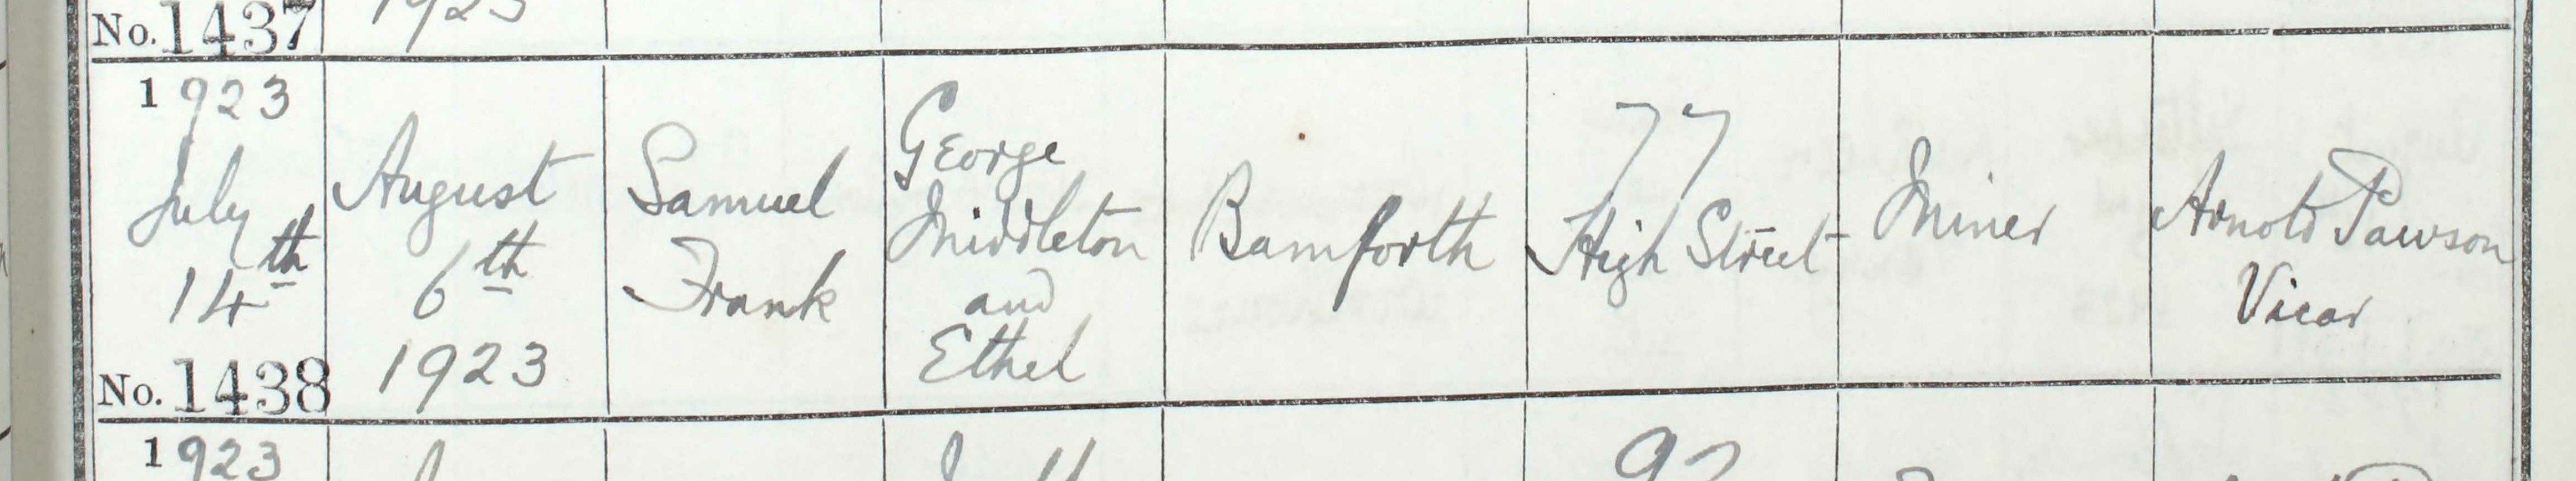 No. 1437
1923
1923
July
14th
No. 1438
August
6th
1923
Samuel
Frank
George
Middleton
and
Ethel
Bamforth
77
High Street
Miner
Arnold Pawson
Vicar
1923